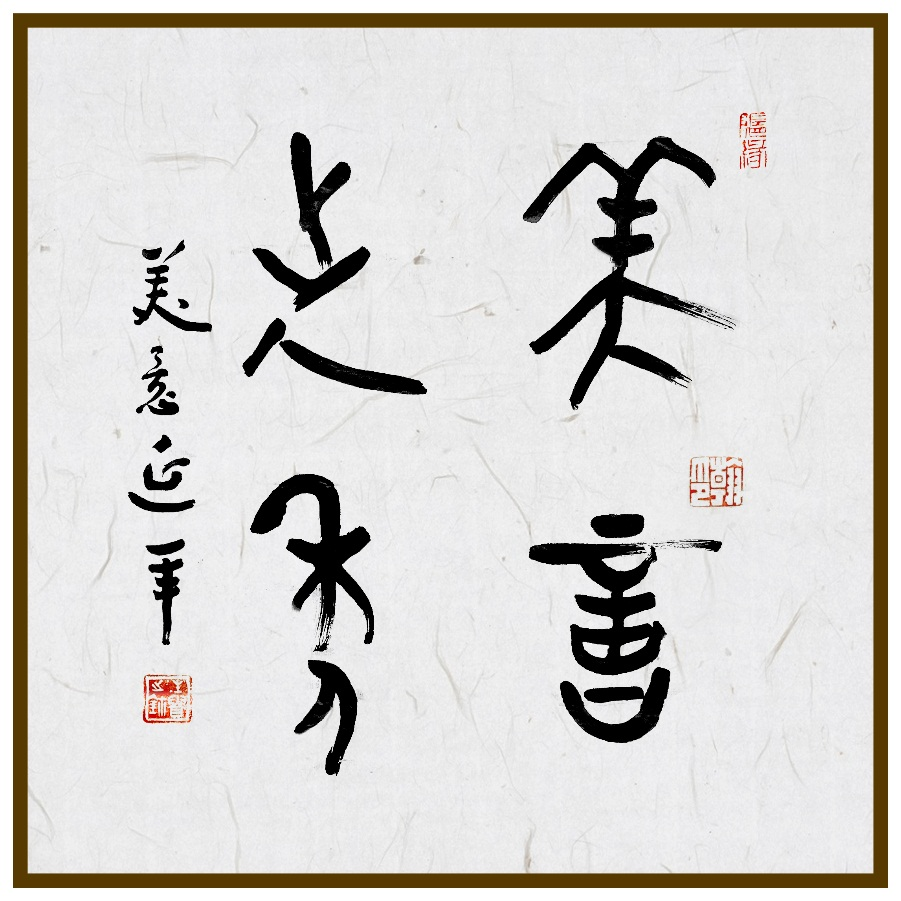 美意
延年
美意延年